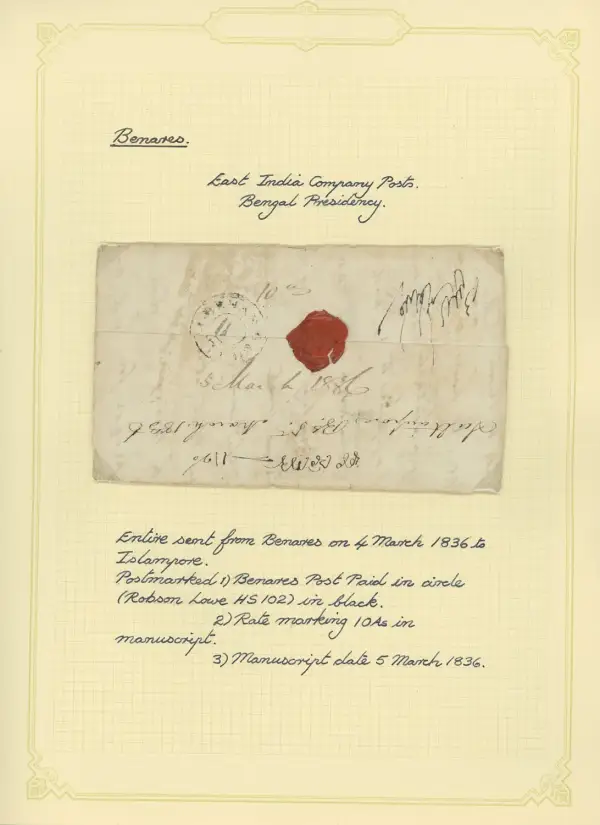 Benares.
East India Company Posts.
Bengal Presidency.
10 as
5 March 1836
March 1836
Entire sent from Benares on 4 March 1836 to
Islampore.
Postmarked 1) Benares Post Paid in circle
(Robson Lowe HS 102) in black.
2) Rate marking 10As in
manuscript.
3) Manuscript date 5 March 1836.